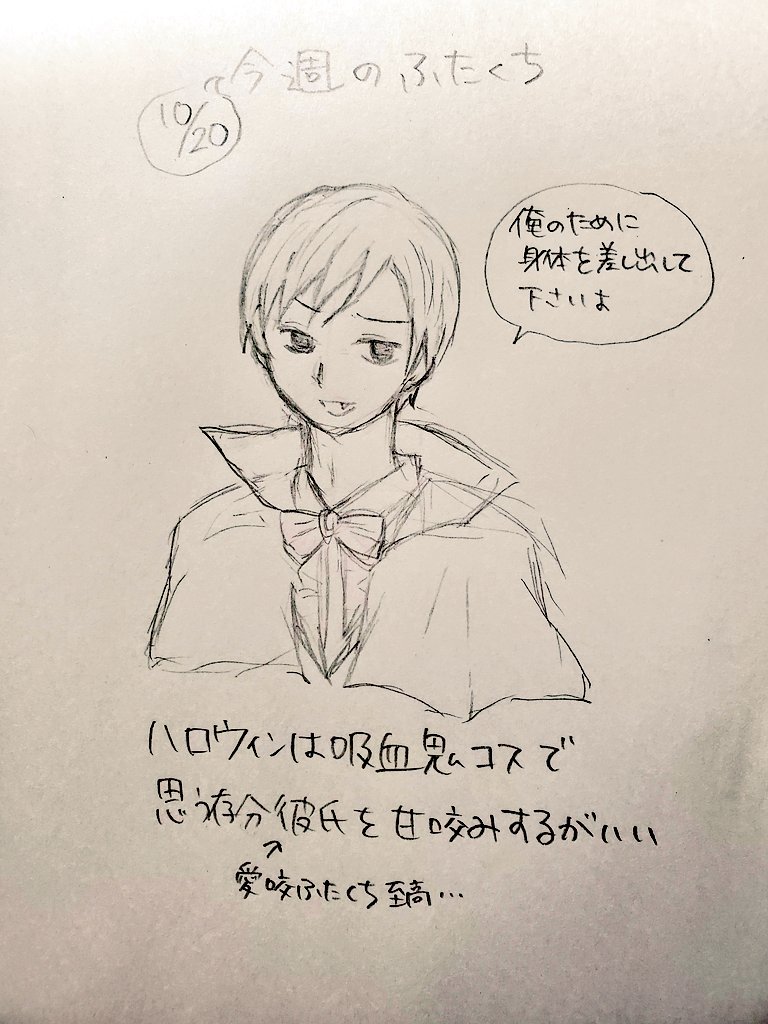 今週のふたくち
10/20
俺のために
身体を差し出して
下さいよ
ハロウィンは吸血鬼コスで
思う存分彼氏を甘咬みするがいい
愛咬ふたくち至高…